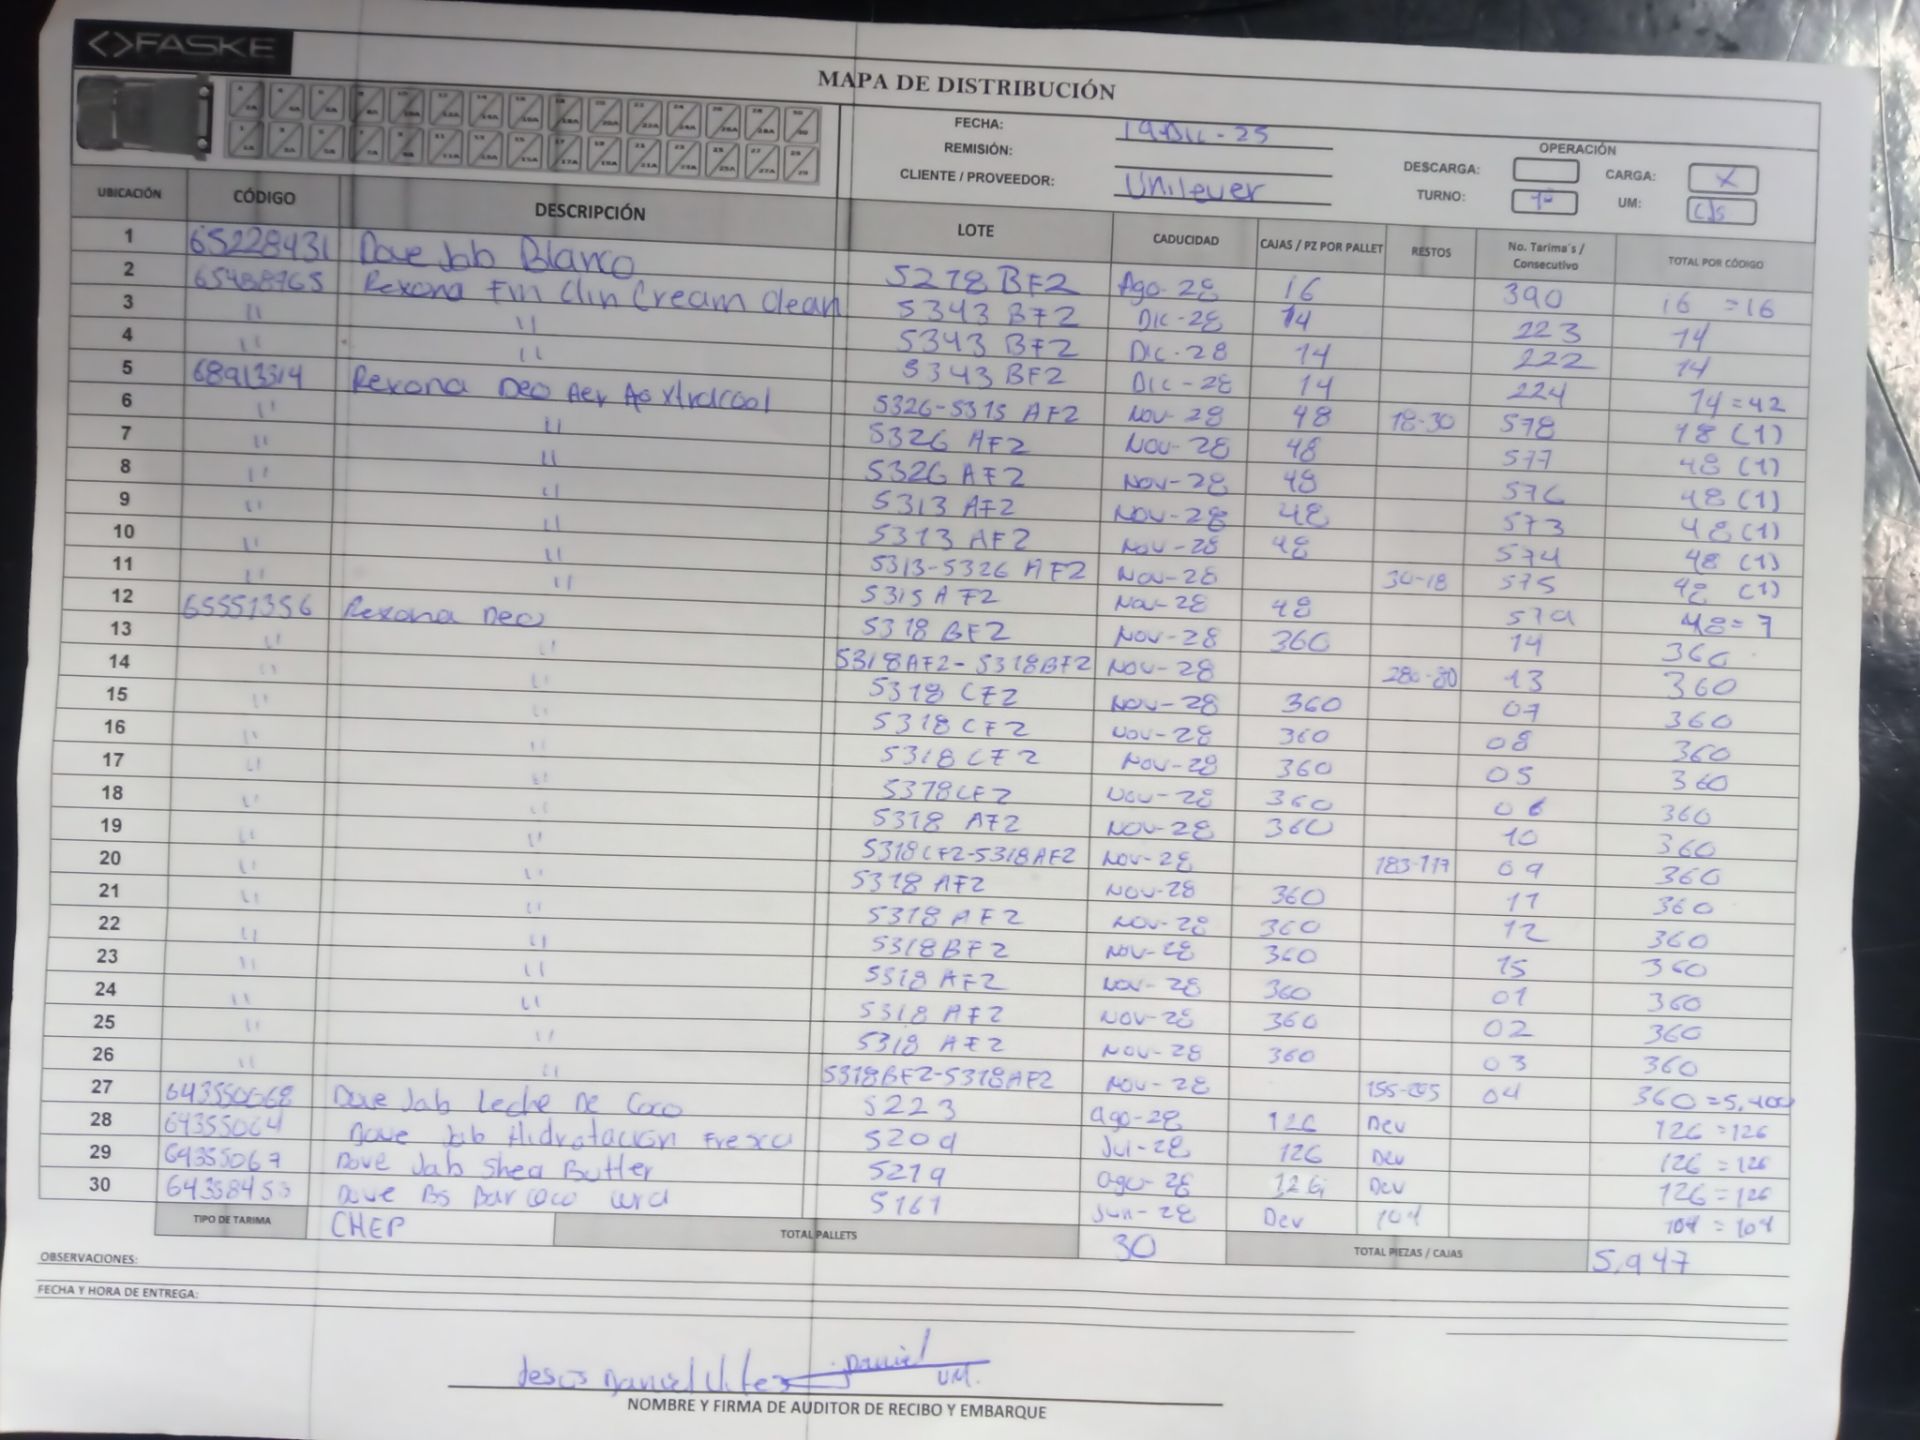 <>FASKE
MAPA DE DISTRIBUCIÓN
FECHA: 19-Dic-25
REMISIÓN:
CLIENTE / PROVEEDOR: Unilever
OPERACIÓN
DESCARGA: CARGA: X
TURNO: 1º UM: cjs
UBICACIÓN CÓDIGO DESCRIPCIÓN LOTE CADUCIDAD CAJAS / PZ POR PALLET RESTOS No. Tarima´s / Consecutivo TOTAL POR CÓDIGO
1 65228431 Dove Jab Blanco 5218 BF2 Ago-28 16 390 16 =16
2 65488765 Rexona Fin Clin Cream Clean 5343 BF2 Dic-28 14 223 14
3 '' '' 5343 BF2 Dic-28 14 222 14
4 '' '' 5343 BF2 Dic-28 14 224 14=42
5 68913314 Rexona Deo Aer Ap xtracool 5326-5315 AF2 Nov-28 48 18-30 578 48 (1)
6 '' '' 5326 AF2 Nov-28 48 577 48 (1)
7 '' '' 5326 AF2 Nov-28 48 576 48 (1)
8 '' '' 5313 AF2 Nov-28 48 573 48 (1)
9 '' '' 5313 AF2 Nov-28 48 574 48 (1)
10 '' '' 5313-5326 AF2 Nov-28 30-18 575 48 (1)
11 '' '' 5315 AF2 Nov-28 48 579 48=7
12 65551356 Rexona Deo 5318 BF2 Nov-28 360 14 360
13 '' '' 5318AF2-5318BF2 Nov-28 280-80 13 360
14 '' '' 5318 CF2 Nov-28 360 07 360
15 '' '' 5318 CF2 Nov-28 360 08 360
16 '' '' 5318 CF2 Nov-28 360 05 360
17 '' '' 5318CF2 Nov-28 360 06 360
18 '' '' 5318 AF2 Nov-28 360 10 360
19 '' '' 5318CF2-5318AF2 Nov-28 09 360
20 '' '' 5318 AF2 Nov-28 360 11 360
21 '' '' 5318 AF2 Nov-28 360 12 360
22 '' '' 5318BF2 Nov-28 360 15 360
23 '' '' 5318 AF2 Nov-28 360 01 360
24 '' '' 5318 AF2 Nov-28 360 02 360
25 '' '' 5318 AF2 Nov-28 360 03 360
26 '' '' 5318BF2-5318AF2 Nov-28 04 360=5,400
27 643550668 Dove Jab Leche De Coco 5223 Ago-28 126 Dev 126 =126
28 64355064 Dove Jab Hidratacion Fresca 5209 Jul-28 126 Dev 126 =126
29 64355067 Dove Jab Shea Butter 5219 Ago-28 126 Dev 126 =126
30 Dove Bs Bar coco 5161 Jun-28 Dev 104 104 =104
TIPO DE TARIMA CHEP TOTAL PALLETS 30 TOTAL PIEZAS / CAJAS 5,947
OBSERVACIONES:
FECHA Y HORA DE ENTREGA:
Jesus Daniel Daniel
NOMBRE Y FIRMA DE AUDITOR DE RECIBO Y EMBARQUE